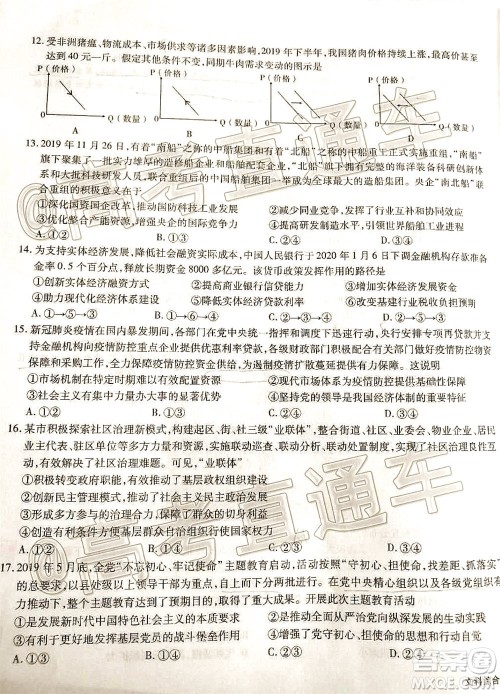 12. 受非洲猪瘟、物流成本、市场供求等诸多因素影响,2019 年下半年,我国猪肉价格持续上涨,最高价
达到 40 元一斤。假定其他条件不变,同期牛肉需求变动的图示是
P(价格) P(价格) P(价格) P(价格)
Q(数量) Q(数量) Q(数量) Q(数量)
A B C D
13. 2019 年 11 月 26 日,有着“南船”之称的中船集团与有着“北船”之称的中船重工正式实施重组,“南船”
旗下聚集了一批实力雄厚的造修船企业和船舶配套企业,“北船”拥有国内较完整的海洋装备科研创新体
系和大批科技研发人员,重组成立的中国船舶集团一跃成为全球最大的造船集团。央企“南北船”联
合重组的积极意义在于
①深化国资国企改革,推动国防科技工业发展 ②减少同业竞争,推动船舶工业高质量发展
③优化整合产能资源,增强国企的国际竞争力 ④提高研发制造实力,扩大国内船舶市场需求
A. ①② B. ①③ C. ②④ D. ③④
14. 为支持实体经济发展,降低社会融资实际成本,中国人民银行于 2020 年 1 月 6 日下调金融机构存款准备
金率 0.5 个百分点,释放长期资金 8000 多亿元。该货币政策发挥作用的路径是
①创新实体经济融资方式 ②提高商业银行信贷能力 ③增强实体经济发展活力
④助力现代化经济体系建设 ⑤降低实体经济贷款利率 ⑥改变基层银行营业税负担
A. ①→③→④ B. ②→⑤→③ C. ⑤→③→④ D. ⑥→②→①
15. 新冠肺炎疫情在国内暴发期间,各部门在党中央统一指挥和部署下,迅速采取行动。央行安排专项再贷款并支
持金融机构向疫情防控重点企业提供优惠利率贷款,各级财政部门积极做好疫情防控经费保障和疫情防控物资
保障和采购工作,全力保障疫情防控资金供应,为遏制疫情扩散蔓延提供了有力保障。这说明
①市场化是应对疫情问题的主要途径 ②现代市场体系为疫情防控提供物质基础
③社会主义可以集中力量办好大事 ④坚持党的领导是我国经济的显著优势
A. ①② B. ①③ C. ②④ D. ③④
16. 某市积极探索社区治理新模式,构建起区、街、社三级“业联体”,整合街道、社区、业委会、物业公司、
主代表、驻区单位等多方力量,实现资源联享、活动联动、分析联判、经费联筹,实现了社区治理良性互
动,有效化解社区治理难题。可见,“业联体”
①积极转变政府职能,有利于提高基层政府管理和服务水平
②创新民主管理模式,推动了社会主义民主政治建设
③充分发挥多方力量,有利于形成共建共治共享的社会治理格局
④有利条件方便基层群众自治组织行使管理职权
A. ①② B. ①④ C. ②③ D. ③④
17. 2019 年 5 月底,全党“不忘初心、牢记使命”主题教育启动,活动按照“守初心、担使命,找差距、抓落实”的
求,以县处级以上领导干部为重点,自上而下分两批进行。在党中央精心组织和各级党组织共同
力推动下,整个主题教育达到了预期目的,取得了重大成果。开展此次主题教育活动
①是发展新时代中国特色社会主义的必然要求 ②是推动全面从严治党向纵深发展的重要举措
③有利于发挥基层党员的战斗堡垒作用 ④有利于始终保持党员队伍的纯洁性
A. ①② B. ①③ C. ②④ D. ③④